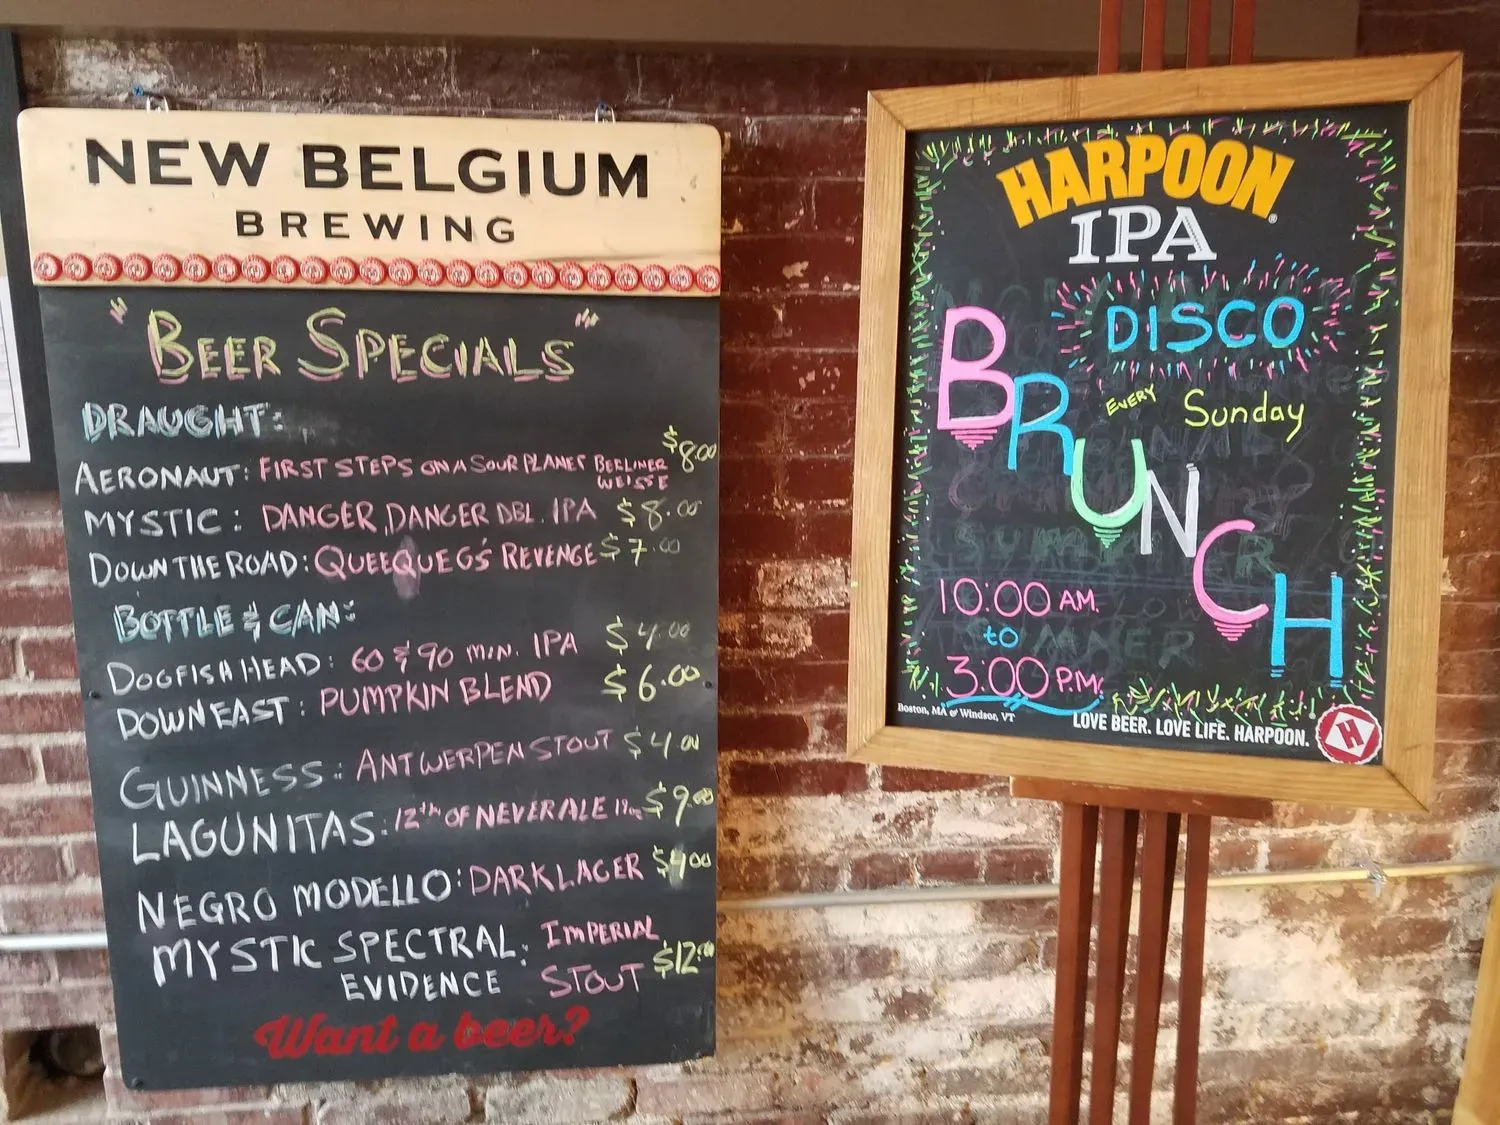 NEW BELGIUM
BREWING
"BEER SPECIALS"
DRAUGHT:
AERONAUT: FIRST STEPS ON A SOUR PLANET BERLINER WEISSE $8.00
MYSTIC: DANGER, DANGER DBL. IPA $8.00
DOWN THE ROAD: QUEEQUEG'S REVENGE $7.00
BOTTLE & CAN:
DOGFISH HEAD: 60 & 90 MIN. IPA $4.00
DOWNEAST: PUMPKIN BLEND $6.00
GUINNESS: ANTWERPEN STOUT $4.00
LAGUNITAS: 12th OF NEVER ALE $9.00
NEGRO MODELLO: DARK LAGER $4.00
MYSTIC SPECTRAL: IMPERIAL
EVIDENCE STOUT $12.00
Want a beer?
HARPOON
IPA
DISCO
BRUNCH
EVERY Sunday
10:00 AM.
to
3:00 P.M.
Boston, MA & Windsor, VT
LOVE BEER. LOVE LIFE. HARPOON.
H